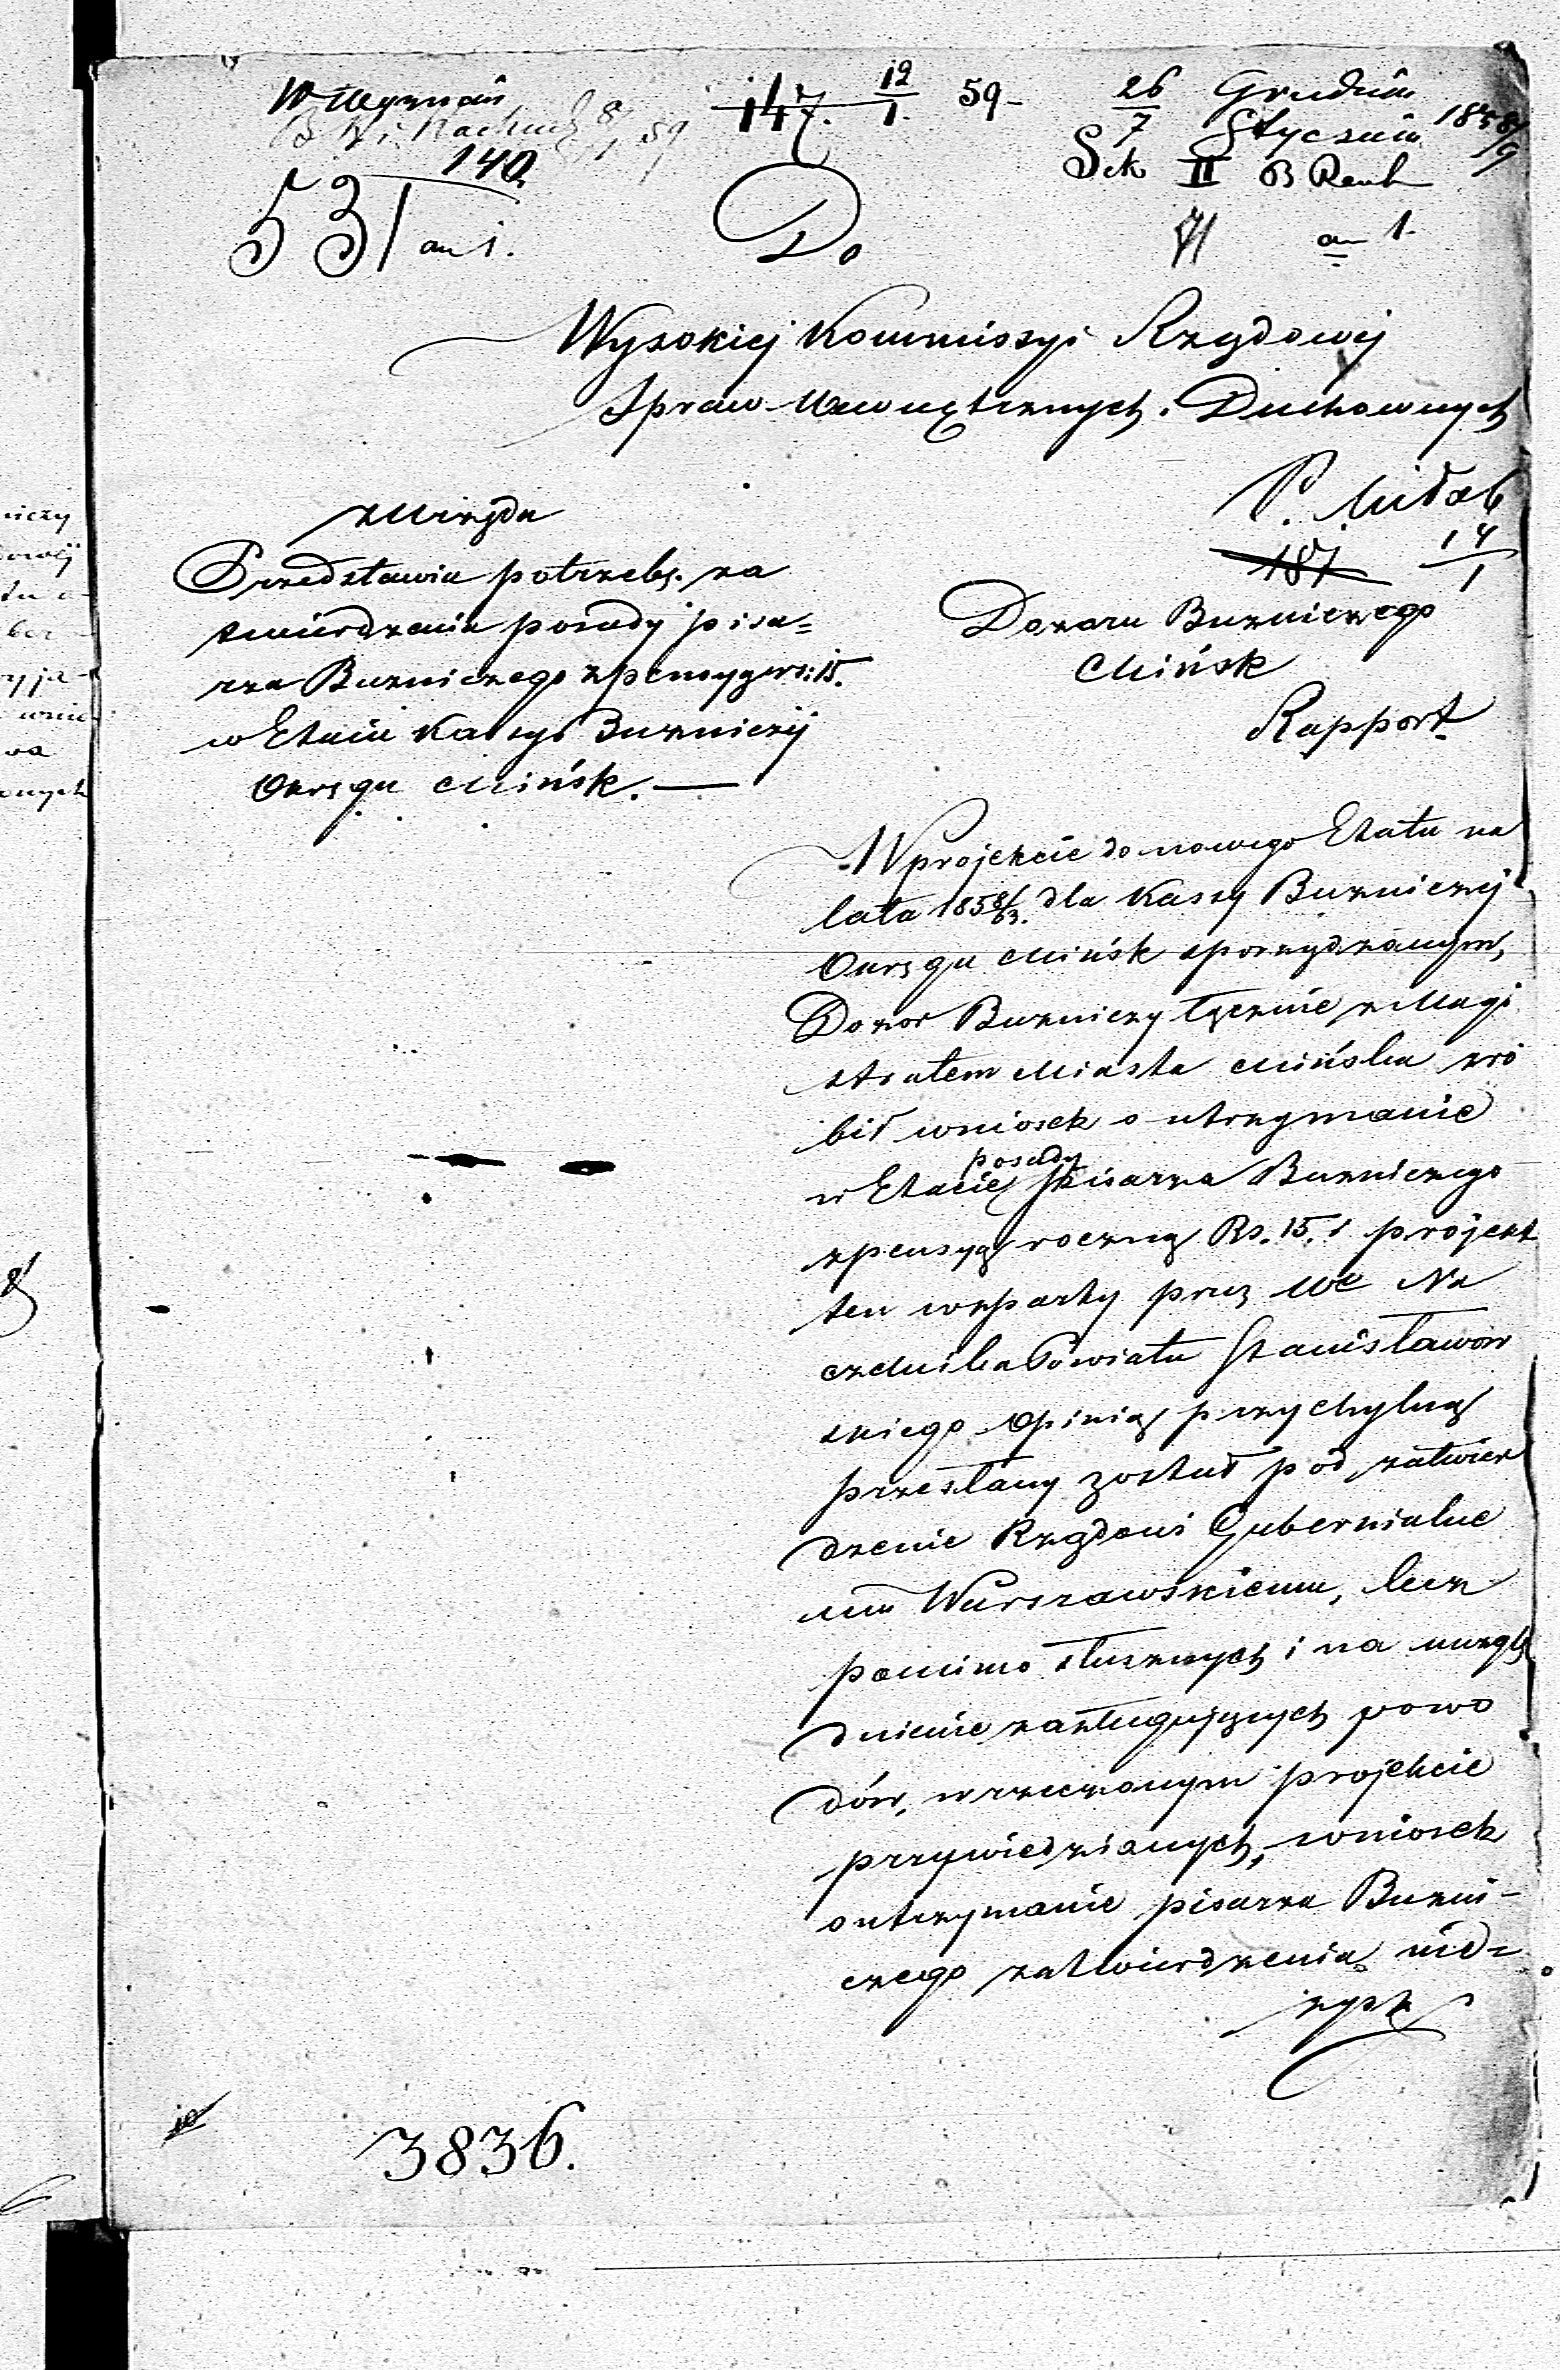 147. 12/1. 59-
26 Grudnia
7 Stycznia 1858/9
140
Sek II B Rach
531 an 1.
71 an 1.
Do
Wysokiej Kommissyi Rządowej
Spraw Wewnętrznych i Duchownych
z Urzędu
Przedstawia potrzebę za
twierdzenia posady pisa=
rza Bużniczego z pensyą rs: 15.
w Etacie Kassy Bużniczej
Okręgu Mińsk. —
187 14/1
Dozoru Bużniczego
Mińsk
Rapport
W projekcie do nowego Etatu na
lata 1858/63. dla Kassy Bużniczej
Okręgu Mińsk sporządzanym,
Dozor Bużniczy łącznie z Magi
stratem Miasta Mińska zro
bił wniosek o utrzymanie
w Etacie posady Pisarza Bużniczego
z pensyą roczną Rs. 15. i projekt
ten wsparty przez We Na
czelnika Powiatu Stanisławow
skiego opinią przychylną
przesłany został pod zatwier
dzenie Rządowi Gubernialne
mu Warszawskiemu, lecz
pomimo słusznych i na uwzglę
dnienie zasługujących powo
dów, w rzeczonym projekcie
przywiedzionych, wniosek
o utrzymanie pisarza Bużni-
czego zatwierdzenia nie=
zysk
3836.